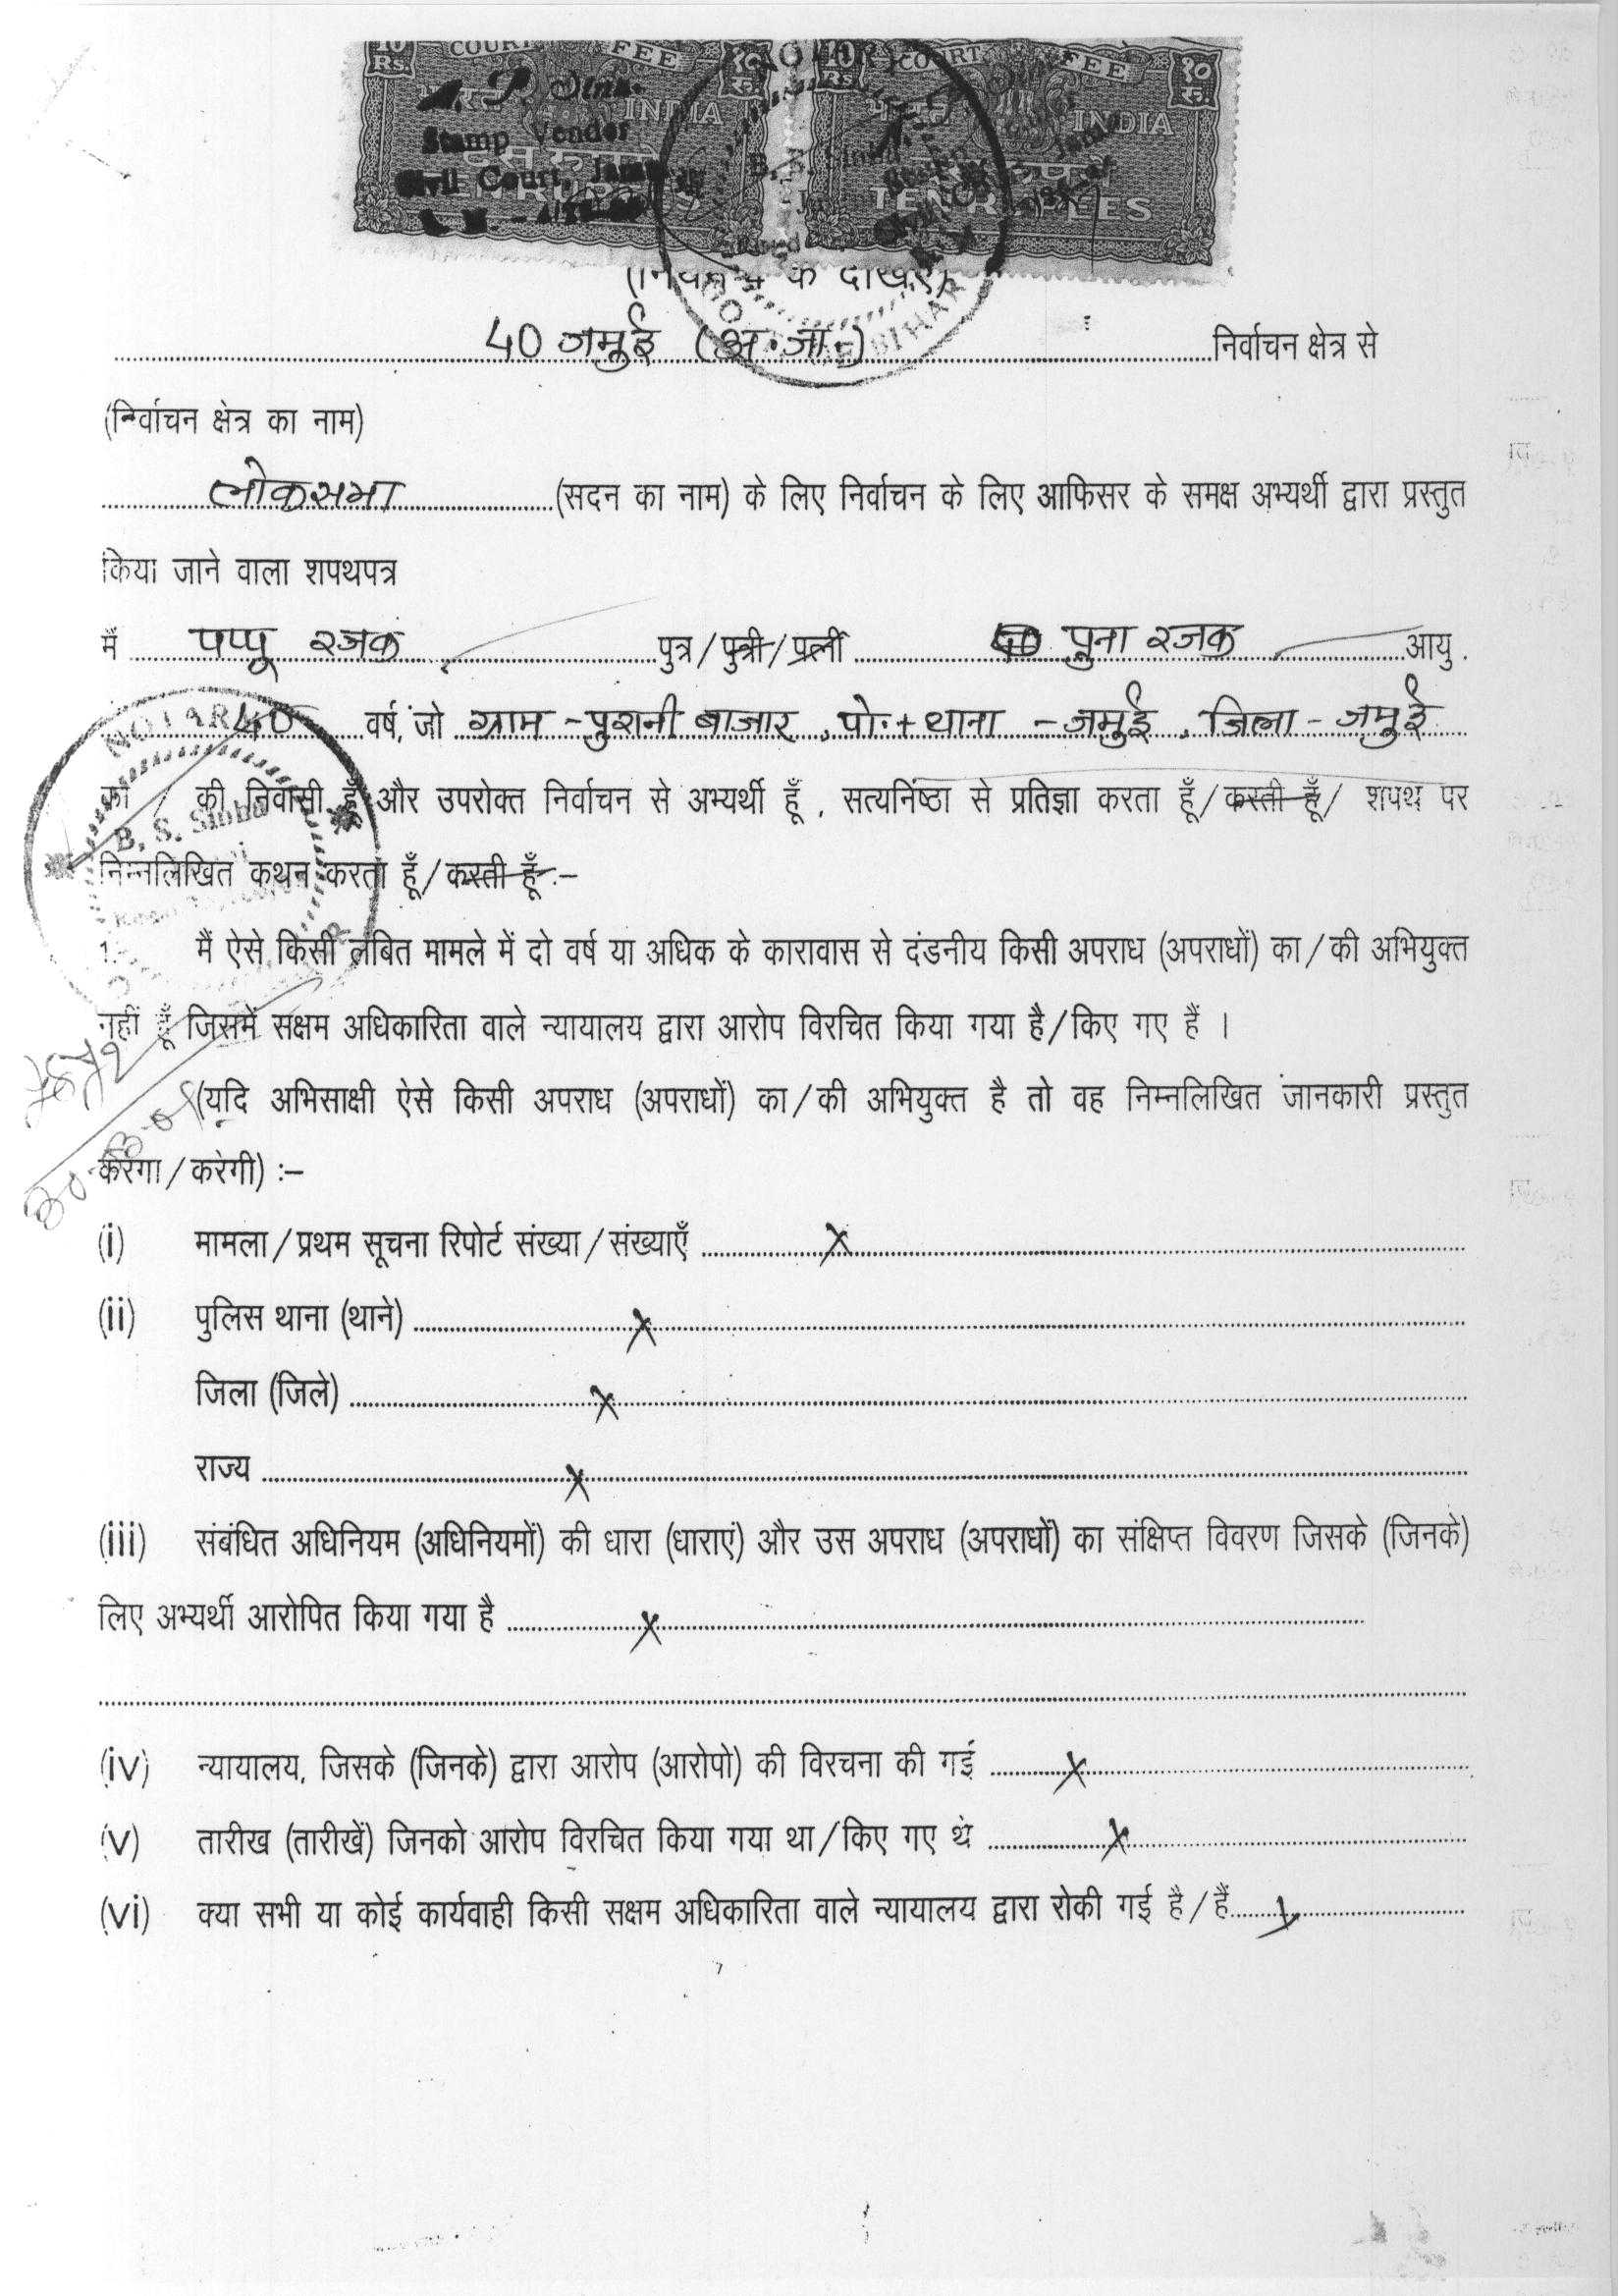 10 Rs. COURT FEE १० रु. 10 Rs COURT FEE १० रु.
भारत INDIA INDIA
Stamp Vender
Civil Court, Jamui
TEN RUPEES TEN RUPEES
40 जमुई (अ.जा.) निर्वाचन क्षेत्र से
(निर्वाचन क्षेत्र का नाम)
लोकसभा (सदन का नाम) के लिए निर्वाचन के लिए आफिसर के समक्ष अभ्यर्थी द्वारा प्रस्तुत
किया जाने वाला शपथपत्र
मैं पप्पू रजक पुत्र/पुत्री/पत्नी पुना रजक आयु
40 वर्ष, जो ग्राम - पुरानी बाजार, पो. + थाना - जमुई, जिला - जमुई
NOTARY
का / की निवासी हूँ और उपरोक्त निर्वाचन से अभ्यर्थी हूँ, सत्यनिष्ठा से प्रतिज्ञा करता हूँ/करती हूँ/ शपथ पर
B. S. Sinha
निम्नलिखित कथन करता हूँ/करती हूँ :–
1. मैं ऐसे किसी लंबित मामले में दो वर्ष या अधिक के कारावास से दंडनीय किसी अपराध (अपराधों) का/की अभियुक्त
नहीं हूँ जिसमें सक्षम अधिकारिता वाले न्यायालय द्वारा आरोप विरचित किया गया है/किए गए हैं ।
(यदि अभिसाक्षी ऐसे किसी अपराध (अपराधों) का/की अभियुक्त है तो वह निम्नलिखित जानकारी प्रस्तुत
करेगा/करेगी) :–
(i) मामला/प्रथम सूचना रिपोर्ट संख्या/संख्याएँ X
(ii) पुलिस थाना (थाने) X
जिला (जिले) X
राज्य X
(iii) संबंधित अधिनियम (अधिनियमों) की धारा (धाराएं) और उस अपराध (अपराधों) का संक्षिप्त विवरण जिसके (जिनके)
लिए अभ्यर्थी आरोपित किया गया है X
(iv) न्यायालय, जिसके (जिनके) द्वारा आरोप (आरोपो) की विरचना की गई X
(v) तारीख (तारीखें) जिनको आरोप विरचित किया गया था/किए गए थे X
(vi) क्या सभी या कोई कार्यवाही किसी सक्षम अधिकारिता वाले न्यायालय द्वारा रोकी गई है/हैं X